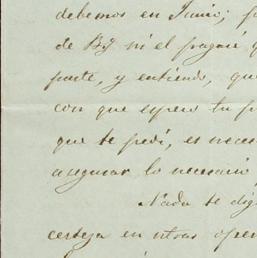 debemos en Junio; 
de By ni el pagaré q
parte, y entiendo, que
con que espero tu p
que te pedí, es neces
asegurar lo necesario
Nada te dig
certeza en otras oper